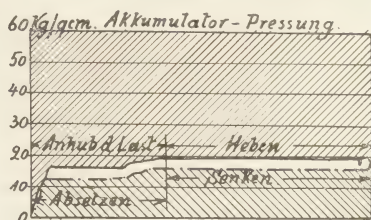 60 Kg/qcm. Akkumulator-Pressung.
50
40
30
Anhub d. Last Heben
20
Senken
10
Absetzen
0